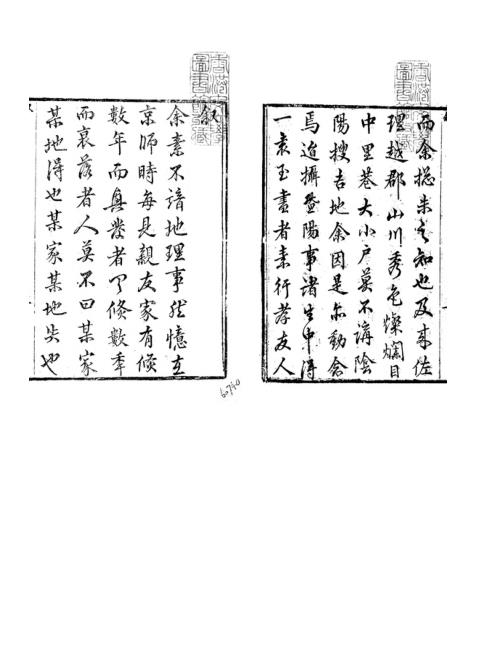 叙
余素不諳地理事然憶在
京師時每見親友家有倏
數年而興發者又倏數年
而衰落者人莫不曰某家
某地得也某家某地失也
而余揔未之知也及來佐
理越郡山川秀色燦爛目
中里巷大小户莫不講陰
陽搜吉地余因是亦動念
焉迨攝暨陽事諸生中得
一袁玉書者素行孝友人